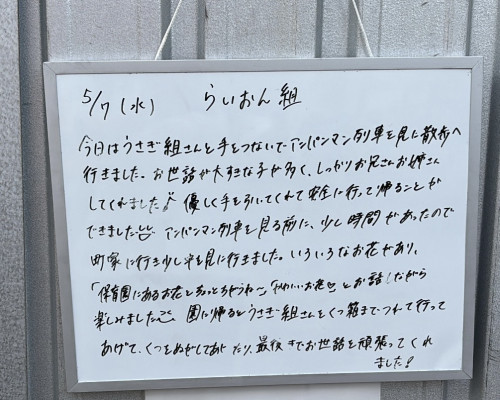 5/7(水) らいおん組
今日はうさぎ組さんと手をつないでアンパンマン列車を見に散歩へ
行きました。お世話が大すきな子が多く、しっかりお兄さんお姉さん
してくれました 優しく手を引いてくれて安全に行って帰ることが
できました アンパンマン列車を見る前に、少し時間があったので
町家に行き少し を見に行きました。いろいろなお花があり、
「保育園にあるお花とちょっとちがうね〜」「かわいいお花」とお話しながら
楽しみました 園に帰るとうさぎ組さんをくつ箱までつれて行って
あげて、くつをぬがしてあげたり、最後までお世話を頑張ってくれ
ました!